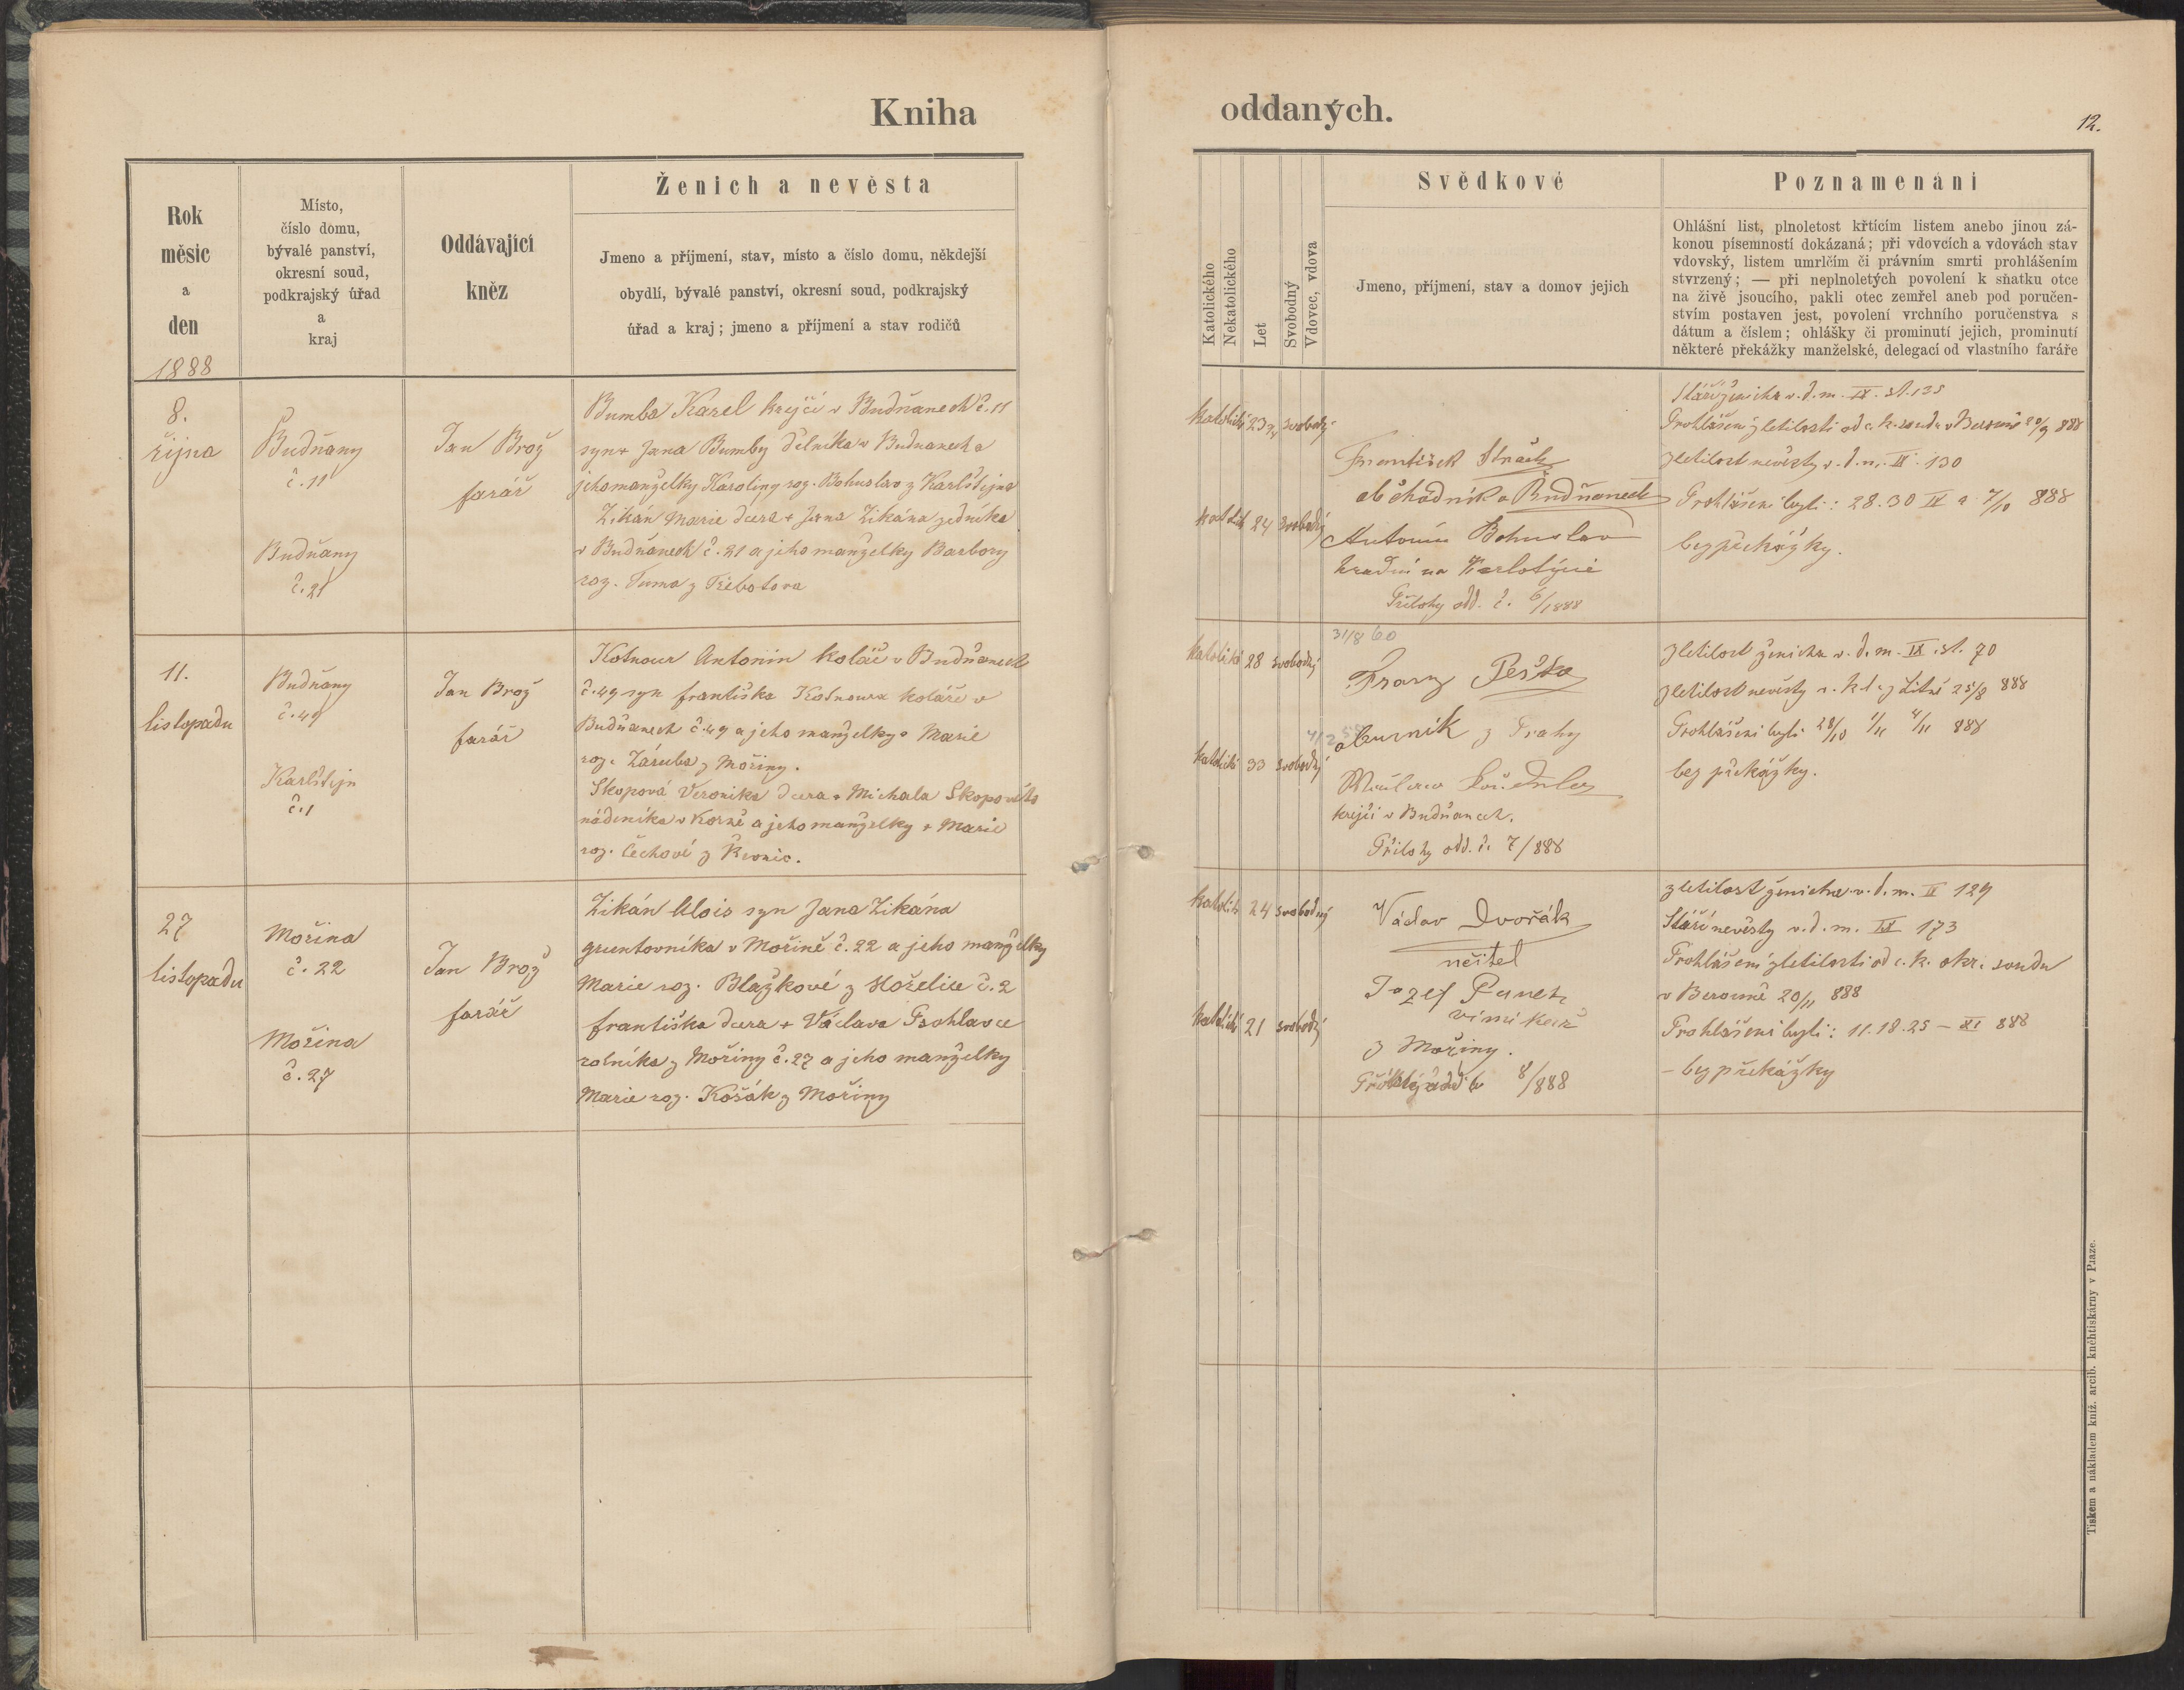 Kniha
oddaných.
12.
Rok
měsíc
a
den
1888
Místo,
číslo domu,
bývalé panství,
okresní soud,
podkrajský úřad
a
kraj
Oddávající
kněz
Ženich a nevěsta
Jmeno a příjmení, stav, místo a číslo domu, někdejší
obydlí, bývalé panství, okresní soud, podkrajský
úřad a kraj; jmeno a příjmení a stav rodičů
Katolického
Nekatolického
Let
Svobodný
Vdovec, vdova
Svědkové
Jmeno, příjmení, stav a domov jejich
Poznamenání
Ohlášní list, plnoletost křticím listem anebo jinou zá-
konou písemností dokázaná; při vdovcích a vdovách stav
vdovský, listem umrlčím či právním smrti prohlášením
stvrzený; — při neplnoletých povolení k sňatku otce
na živě jsoucího, pakli otec zemřel aneb pod poručen-
stvím postaven jest, povolení vrchního poručenstva s
dátum a číslem; ohlášky či prominutí jejich, prominutí
některé překážky manželské, delegací od vlastního faráře
8.
října
Budňany
č. 11
Budňany
č. 21
Jan Brož
farář
Bumba Karel krejčí v Budňanech č. 11
syn + Jana Bumby dělníka v Budnanech a
jeho manželky Karoliny roz. Bohuslav z Karlštejna
Zikán Marie dcera + Jana Zikána zedníka
v Budňanech č. 21 a jeho manželky Barbory
roz. Tuma z Třebotova
katolické 23 svobodný
katolick 24 svobodný
František
obchodník v Budňanech
Antonín Bohuslav
na
Přílohy odd. č. 6/1888
Stáří ženicha v. d. m. IX. st. 135
Prohlášení zletilosti od c. k. soudu v Berouně 20/9 888
zletilost nevěsty v. d. m. IX. 130
Prohlášení byli: 28. 30 IX a 7/10 888
bez překážky.
11.
listopadu
Budňany
č. 49
Karlštejn
č. 1
Jan Brož
farář
Kotnour Antonin kolář v Budňanech
č. 49 syn Františka Kotnoura koláře v
Budňanech č. 49 a jeho manželky Marie
roz. Záruba z Mořiny.
Skopová Veronika dcera + Michala Skopového
nádeníka v Korně a jeho manželky + Marie
roz. Čechové z
katolické 28 svobodný
katolické 33 svobodný
31/8 60
Franz Pešta
z Prahy
krejčí v Budňanech.
Přílohy odd. č. 7/888
zletilost ženicha v. d. m. IX. st. 70
zletilost nevěsty v. k. l. z Litně 25/8 888
Prohlášení byli 28/10 1/11 4/11 888
bez překážky.
27
listopadu
Mořina
č. 22
Mořina
č. 27
Jan Brož
farář
Zikán Alois syn Jana Zikána
gruntovníka v Mořině č. 22 a jeho manželky
Marie roz. Blažkové z Hořelice č. 2
Františka dcera + Václava Prohlavce
rolníka z Mořiny č. 27 a jeho manželky
Marie roz. Košák z Mořiny
katolick 24 svobodný
katolické 21 svobodný
Václav Dvořák
učitel
Jozef
z Mořiny.
8/888
zletilost ženicha v. d. m. IX 129
Stáří nevěsty v. d. m. IX 173
Prohlášení zletilosti od c. k. okr. soudu
v Berouně 20/11 888
Prohlášení byli: 11. 18. 25 – XI 888
– bez překážky
Tiskem a nákladem kníž. arcib. knihtiskárny v Praze.